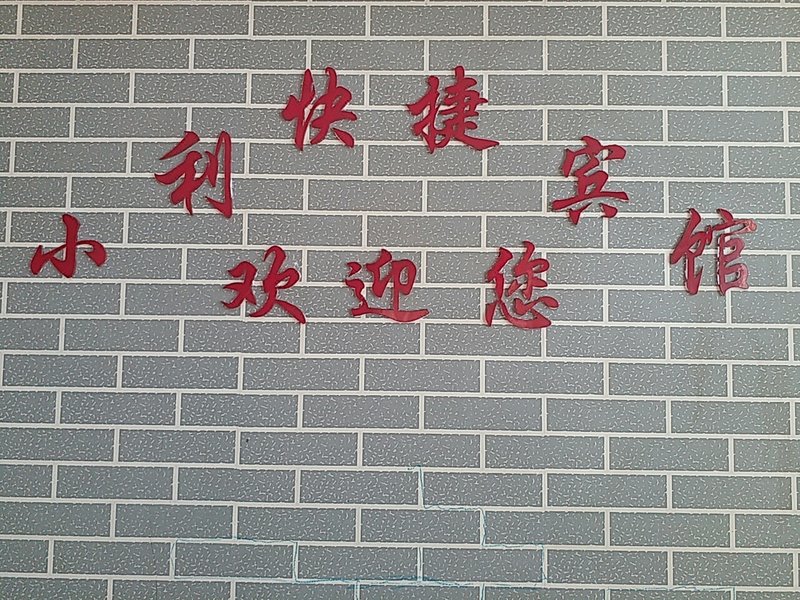 小利快捷宾馆
欢迎您